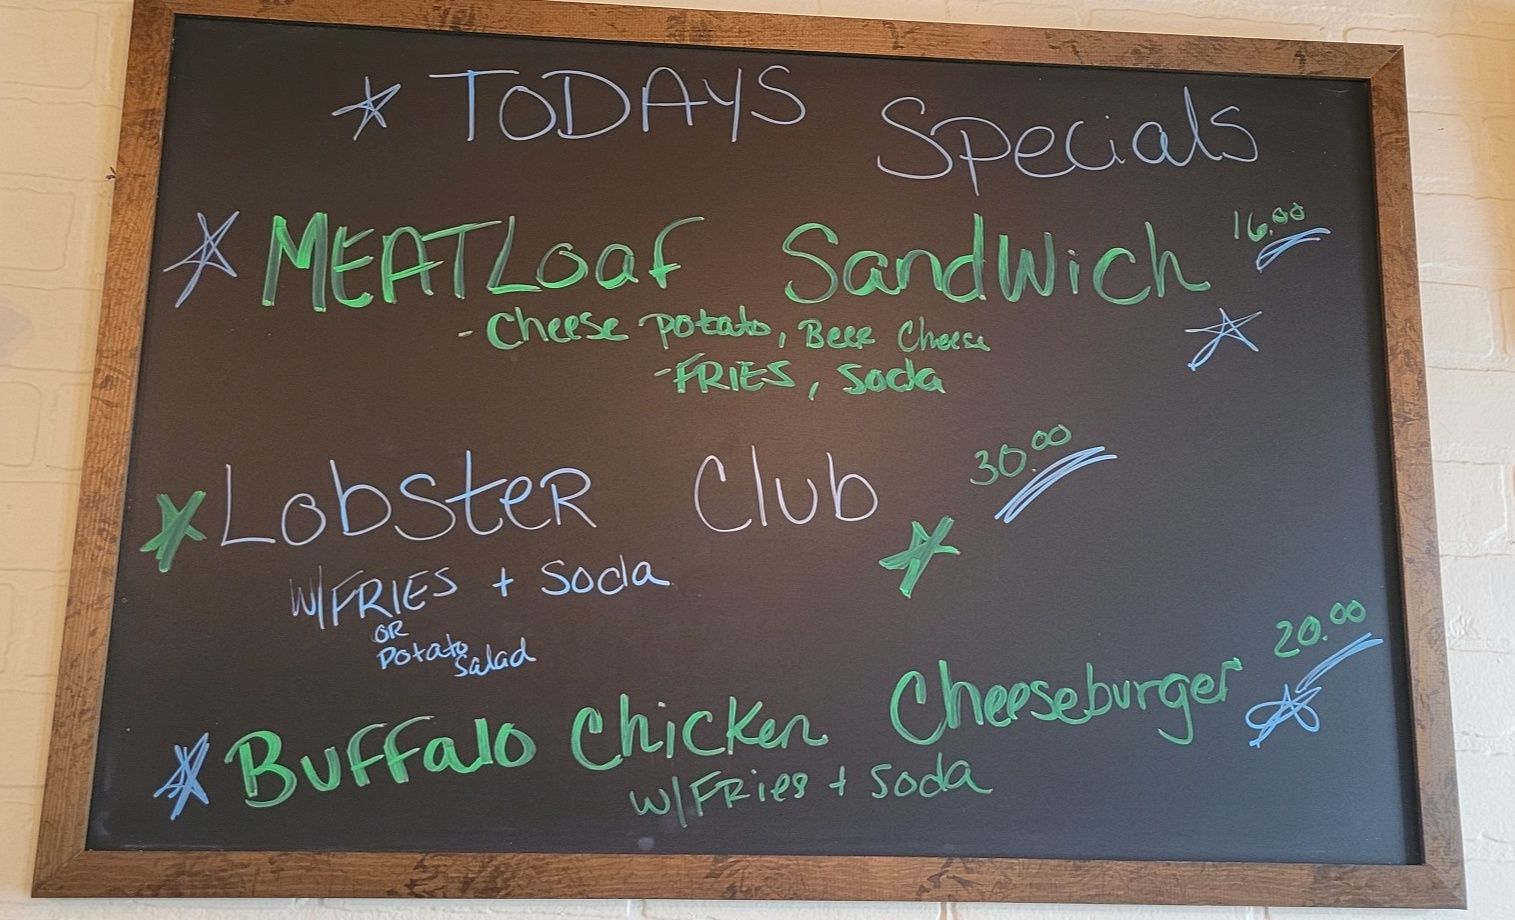 TODAYS Specials
MEATLoaf SandWich 16.00
- Cheese Potato, Beer Cheese
- FRIES, Soda
LobSteR Club 30.00
W/FRIES + Soda
OR
Potato
Salad
Buffalo Chicken Cheeseburger 20.00
W/FRies + Soda